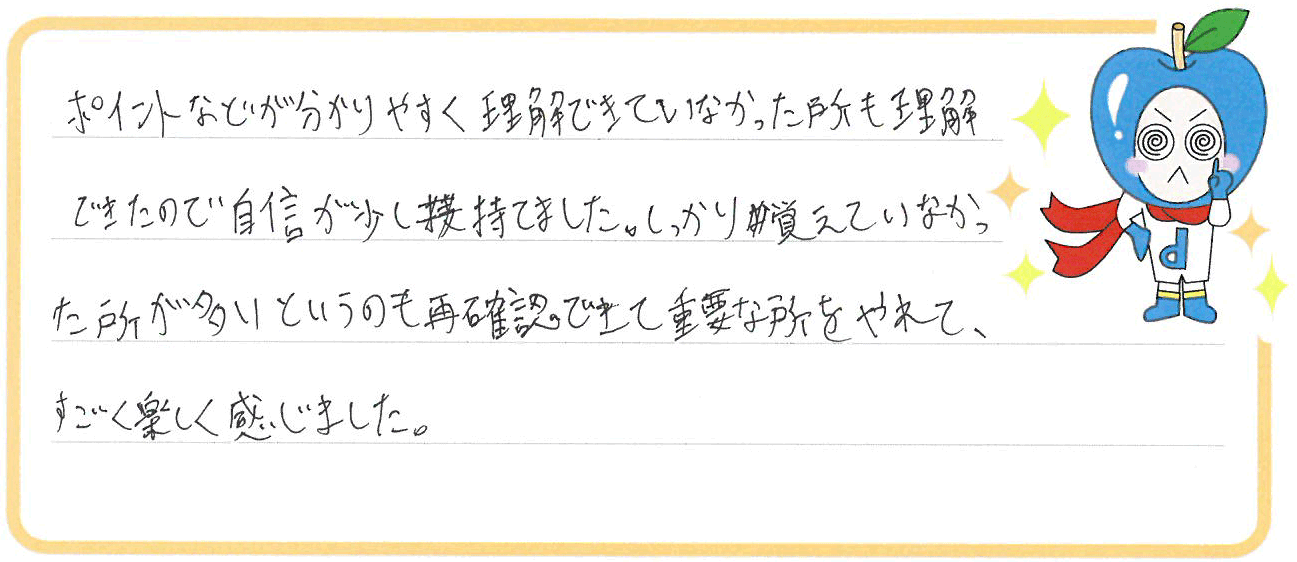 ポイントなどが分かりやすく理解できていなかった所も理解
できたので自信が少し持てました。しっかり覚えていなかっ
た所が多いというのも再確認できて重要な所をやれて、
すごく楽しく感じました。
d